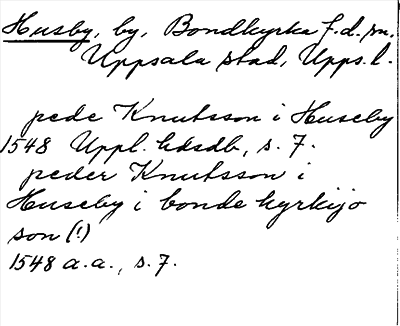 Husby, by, Bondkyrka f.d. sn,
Uppsala stad, Upps. l.
pede Knutsson i Huseby
1548 Uppl. hdsdb, s. 7.
peder Knutsson i
Huseby i bonde kyrkijo
son (!)
1548 a.a., s. 7.